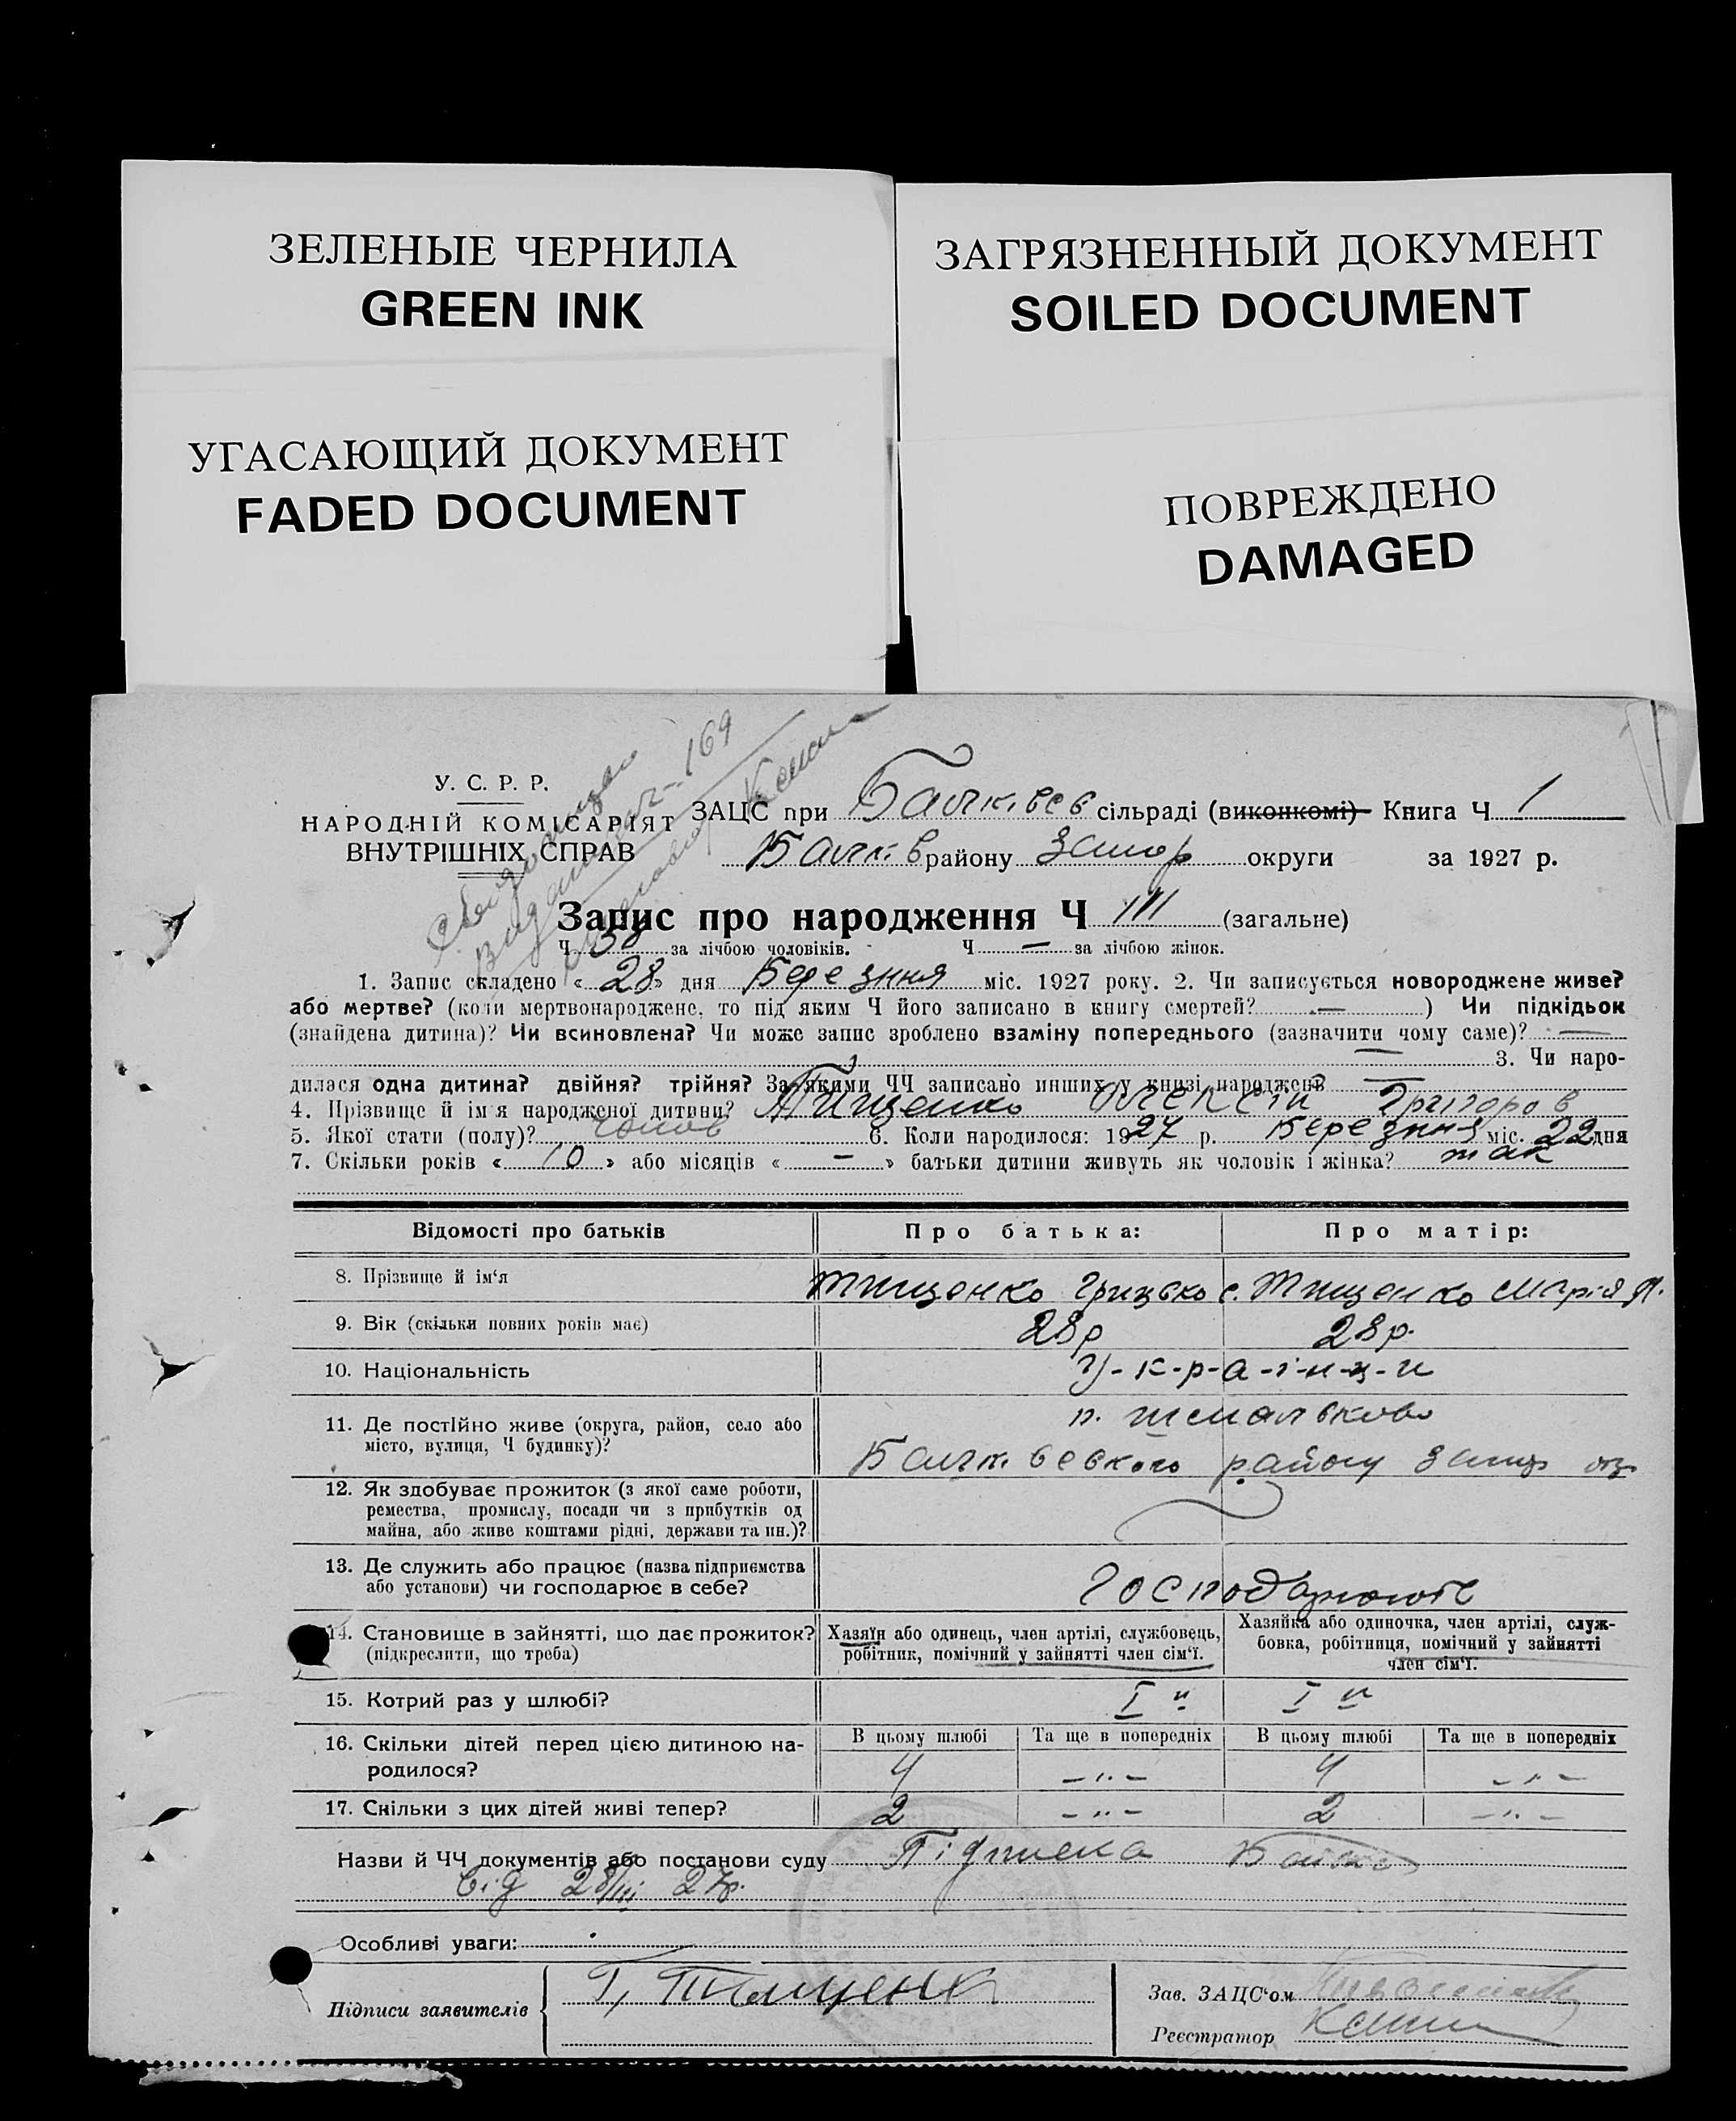 ЗЕЛЕНЫЕ ЧЕРНИЛА
GREEN INK
УГАСАЮЩИЙ ДОКУМЕНТ
FADED DOCUMENT
ЗАГРЯЗНЕННЫЙ ДОКУМЕНТ
SOILED DOCUMENT
ПОВРЕЖДЕНО
DAMAGED
169
У. С. Р. Р.
НАРОДНІЙ КОМІСАРІЯТ
ВНУТРІШНІХ СПРАВ
ЗАЦС при Балківсв сільраді (виконкомі) Книга Ч 1
Балків району Запор округи за 1927 р.
Запис про народження Ч 111 (загальне)
Ч за лічбою чоловіків. Ч — за лічбою жінок.
1. Запис складено « 28 » дня Березння міс. 1927 року. 2. Чи записується новороджене живе?
або мертве? (коли мертвонароджене, то під яким Ч його записано в книгу смертей? — ) Чи підкідьок
(знайдена дитина)? Чи всиновлена? Чи може запис зроблено взаміну попереднього (зазначити чому саме)? —
— 3. Чи наро-
дилася одна дитина? двійня? трійня? За якими ЧЧ записано инших у книзі народжень? —
4. Прізвище й ім'я народженої дитини? Тищенко Олексій Григоров
5. Якої стати (полу)? чолов 6. Коли народилося: 1927 р. Березння міс. 22 дня
7. Скільки років « 10 » або місяців « — » батьки дитини живуть як чоловік і жінка? так
Відомості про батьків Про батька: Про матір:
8. Прізвище й ім'я Тищенко Грицько С. Тищенко Марія П.
9. Вік (скільки повних років має) 28 р 28 р.
10. Національність У-к-р-а-ї-н-ц-и
11. Де постійно живе (округа, район, село або
місто, вулиця, Ч будинку)?
Балківського району Запор окр
12. Як здобуває прожиток (з якої саме роботи,
ремества, промислу, посади чи з прибутків од
майна, або живе коштами рідні, держави та ин.)?
13. Де служить або працює (назва підприємства
або установи) чи господарює в себе? господарюють
14. Становище в зайнятті, що дає прожиток? Хазяїн або одинець, член артілі, службовець, Хазяйка або одиночка, член артілі, служ-
(підкреслити, що треба) робітник, помічний у зайнятті член сім'ї. бовка, робітниця, помічний у зайнятті
член сім'ї.
15. Котрий раз у шлюбі? І " І "
16. Скільки дітей перед цією дитиною на- В цьому шлюбі Та ще в попередніх В цьому шлюбі Та ще в попередніх
родилося? 4 – " – 4 – " –
17. Скільки з цих дітей живі тепер? 2 – " – 2 – " –
Назви й ЧЧ документів або постанови суду Підписка
від 28/ІІІ 27р.
Особливі уваги:
Підписи заявителів Г, Тищенко
Зав. ЗАЦС'ом
Реєстратор